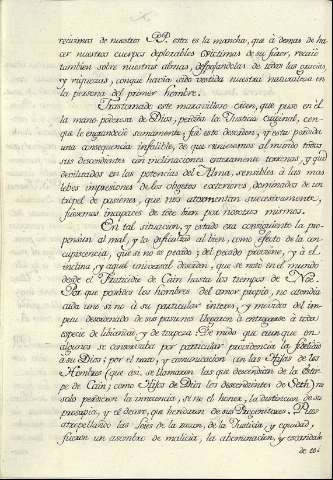 recivimos de nuestros PP. esta es la mancha, que á demas de ha-
cer nuestros cuerpos deplorables victimas de su furor, recaio
tambien sobre nuestras almas, despojandolas de todas las gracias,
y riquezas, conque havia sido vestida nuestra naturaleza en
la persona del primer hombre.
Trastornado este maravilloso orden, que puso en él
la mano poderosa de Dios, perdida la Justicia original, con-
que le engrandeció sumamente, fué este desorden, y esta pérdida
una consequencia infalible, de que viniesemos al mundo todos
sus descendientes con inclinaciones enteramente terrenas, y que
devilitados en las potencias del Alma, sensibles á las mas
lebes impresiones de los objetos exteriores, dominados de un
tropel de pasiones, que nos atormentan sucesivamente,
fuesemos incapaces de todo bien por nosotros mismos.
En tal situacion, y estado era consiguiente la pro-
pension al mal, y la dificultad al bien, como efecto de la con-
cupiscencia, que si no es pecado, del pecado proviene, y á él
inclina, y aquel universal desorden, que se notó en el mundo
desde el Fratricidio de Cain hasta los tiempos de Noé.
Por que poseidos los hombres del amor propio, no atendia
cada uno si no á su particular interes, y movidos del im-
petu desordenado de sus pasiones llegaron á entregarse á toda
especie de libiandad, y de torpeza. De modo que aunque en
algunos se conservaba por particular providencia la fidelidad
á su Dios; por el trato, y comunicacion con las Hijas de los
Hombres (que asi se llamaron las que descendian de la Estir-
pe de Cain; como Hijos de Dios los descendientes de Seth) no
solo perdieron la inocencia, si no el honor, la distincion de su
prosapia, y el decoro, que heredaron de sus Progenitores. Pues
atropellando las Leies de la razon, de la Justicia, y equidad,
fueron un asombro de malicia, la abominacion, y escandalo
de to-